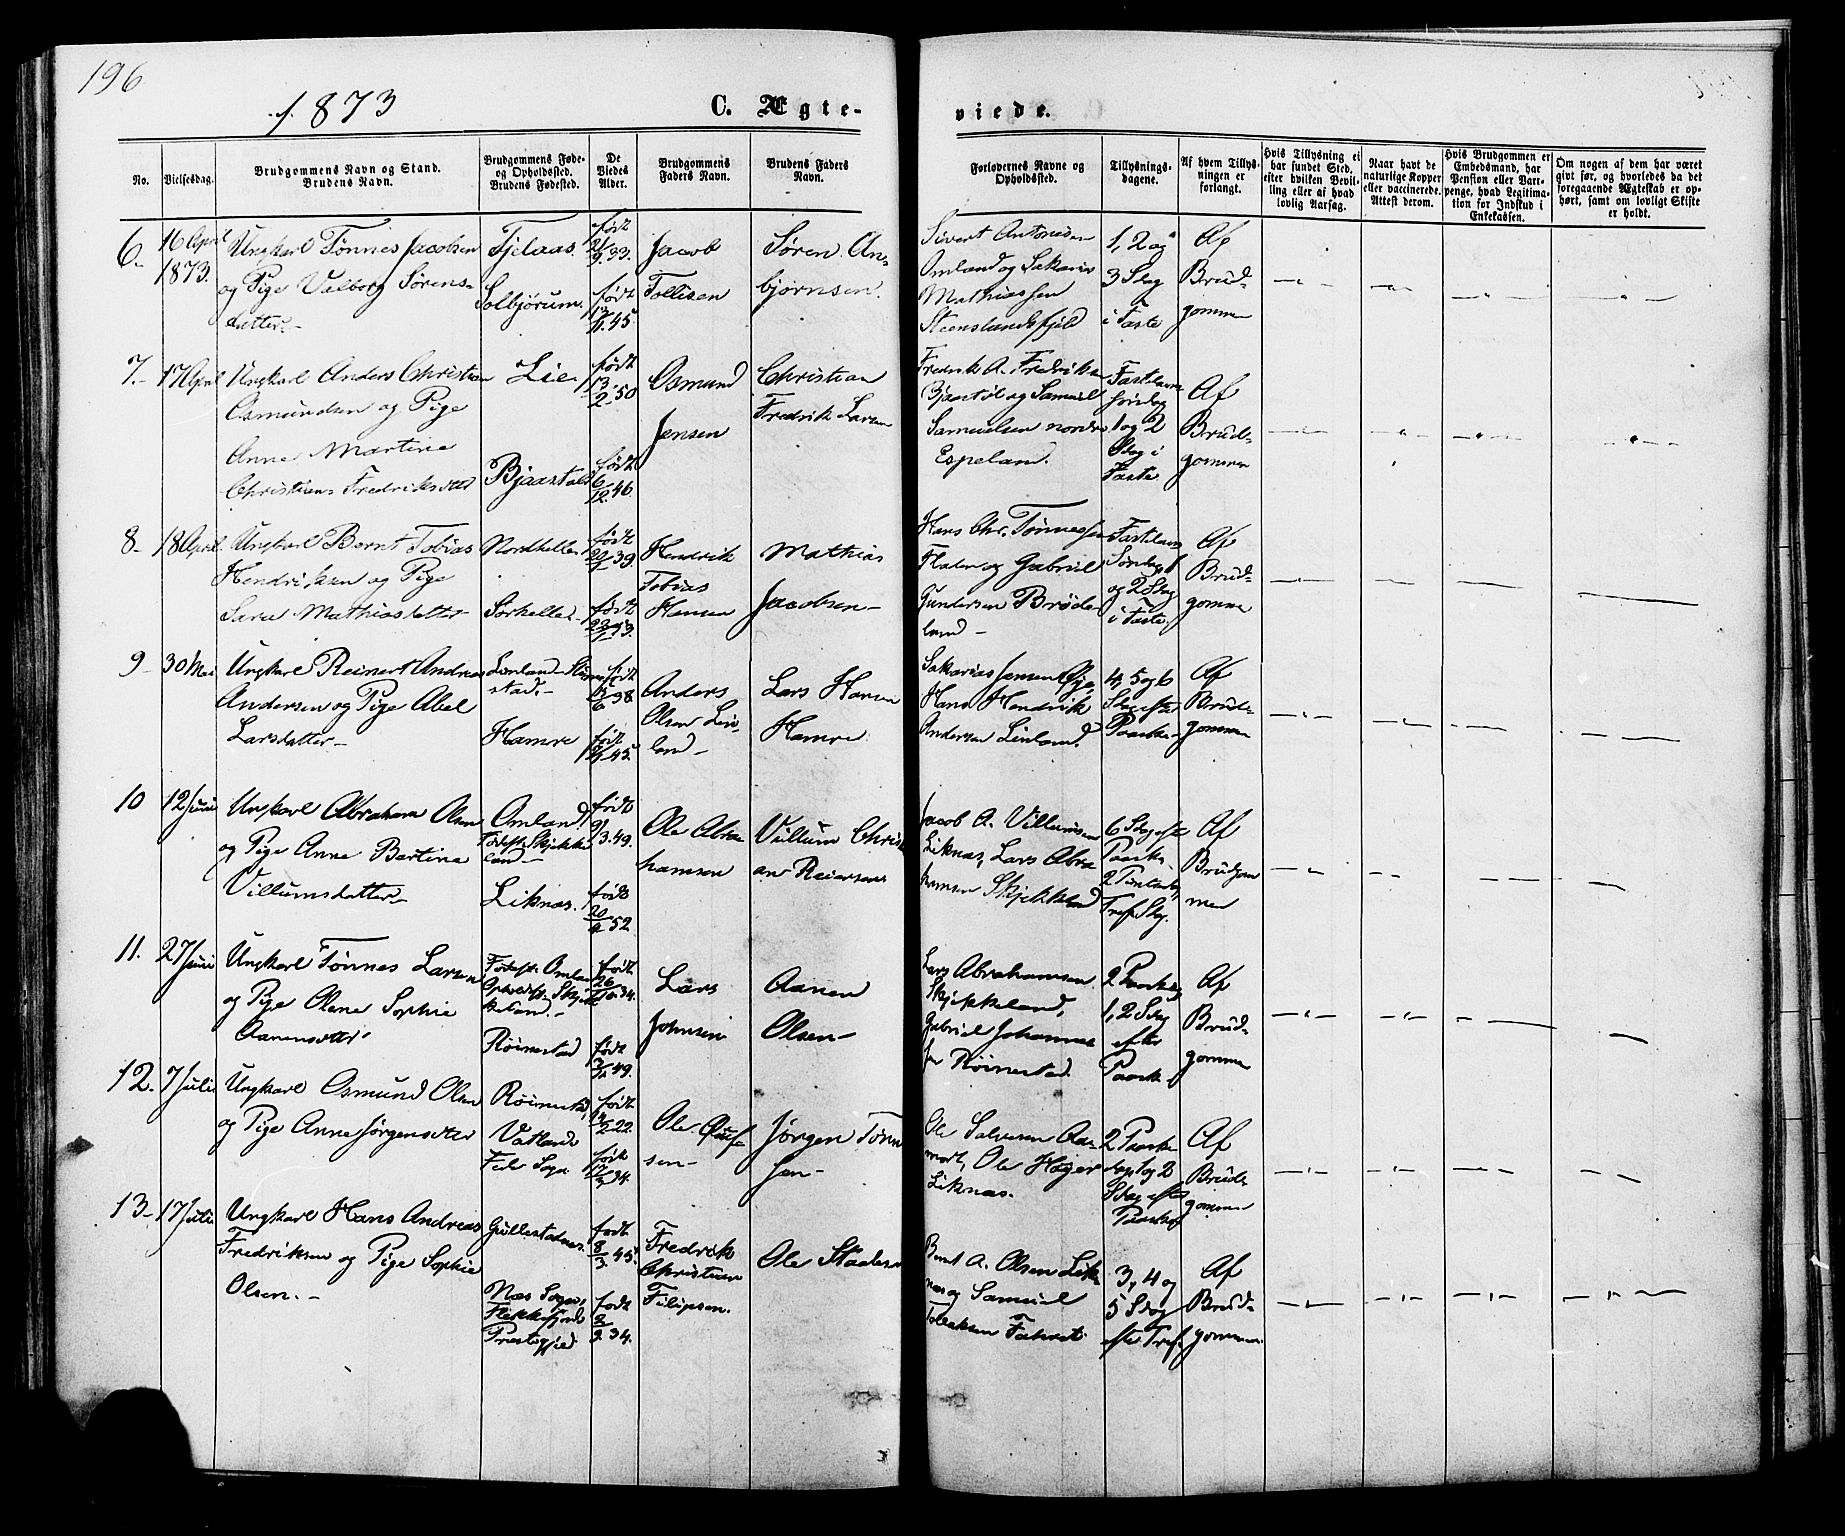 196
1873
C. Ægte-
viede.
No.
Vielsesdag.
Brudgommens Navn og Stand.
Brudens Navn.
Brudgommens Føde-
og Opholdssted.
Brudens Fødested.
De
Viedes
Alder.
Brudgommens
Faders Navn.
Brudens Faders
Navn.
Forlovernes Navne og
Opholdssted.
Tillysnings-
dagene.
Af hvem Tillys-
ningen er
forlangt.
Hvis Tillysning ei
har fundet Sted,
efter hvilken Bevil-
ling eller af hvad
lovlig Aarsag.
Naar havt de
naturlige Kopper
eller vaccinerede.
Attest derom.
Hvis Brudgommen er
Embedsmand, har
Pension eller Vart-
penge, hvad Legitima-
tion for Indskud i
Enkekassen.
Om nogen af dem har været
givt før, og hvorledes da det
foregaaende Ægteskab er op-
hørt, samt om lovligt Skifte
er holdt.
6.
16 April
1873.
Ungkarl Tønnes Jacobsen
og Pige Valborg Sørens-
datter.-
Fjelaas
Solbjørum.
født
33.
født
45
Jacob
Tollisen
Søren An-
bjørnsen.
Sivert Antonisen
Omland og Sakarias
Mathiassen
Steenslandsfjeld
1, 2 og
3 Sdag
i Faste
Af
Brud-
gommen
7.-
17 April
Ungkarl Anders Christian
Osmundsen og Pige
Anne Martine
Christiens Fredriksdtter
Lie
Bjaastøl
født
13/2 50
født
6/12 46.
Osmund
Jensen
Christian
Fredrik Larsen
Fredrik A. Fredriksen
Bjaastøl og Samuel
Samuelsen nordre
Espeland.
Fastelavn
søndag
1 og 2
Sdag i
Faste
Af
Brud-
gommen
8-
18 April.
Ungkarl Bernt Tobias
Hendriksen og Pige
Sara Mathiasdatter
Nordhelle
Sørhelle
født
39
født
53.
Hendrik
Tobias
Hansen
Mathias
Jacobsen-
Hans Chr. Tønnessen
og Gabriel
Gundersen Brøde-
land-
Fastelavn
Søndag 1
og 2 Sdag
i Faste
Af
Brud-
gomme
9-
30 Mai
Ungkarl Reinert Andreas
Andersen og Pige Abel
Larsdatter-
stad.
Hamre
født
38
født
45.
Anders
Olsen Lin-
land-
Lars Hansen
Hamre
Sakarias Jensen Øje,
Hans Hendrik
Andersen Linland.
4, 5 og 6
Sdag efter
Paaske-
Af
Brud-
gommen
10
12 Juni
Ungkarl Abraham Olsen
og Pige Anne Bartine
Villumsdatter-
Omland,
Fødest. Skjekke
land-
Liknas.
født
9/3.49.
født
20/4 52
Ole Abra
hamsen
Villum Christi
an Reiersen
Jacob A. Villumsen
Liknas, Lars Abra
hamsen Skjekkeland
6 Sdag efter
Paaske-
2 Pintsedag
Tref. Sdg.
Af
Brudgom
men
11.
27 Juni
Ungkarl Tønnes Larsen
og Pige Olene Sophie
Aanensdtter
Fødest. Omland
Opholdst. Skjek
keland.-
Røinestad
født
26/10 34.
født
49.
Lars
Johnsen
Aanen
Olsen-
Lars Abrahamsen
Skjekkeland,
Gabriel Johannes
sen Røinestad.
2 Paaskedag
1, 2 Sdag
efter
Paaske.
Af
Brud-
gomme
12.
7 Juli
Ungkarl Osmund Olsen
og Pige Anne Jørgensdtter
Røinestad,
Vatland
Fede Sogn
født
22.
født
34.
Ole
sen-
Jørgen Tønne
sen-
Ole Salvesen Aa-
mot, Ole Høyer
Liknas.
2 Paaske
dag 1 og 2
Sdag efter
Paaske
Af
Brud-
gommen
13-
17 Juli
Ungkarl Hans Andreas
Fredriksen og Pige Sophie
Olsen.-
Gullestadnes.
Næs Sogn,
Flekkefjords
Præstegjeld
født
8/3.45.
født
2/2 34.
Fredrik
Christian
Filipsen.
Ole Stadesen
Bernt A. Olsen Lik-
nas og Samuel
Tollaksen
3, 4 og
5 Sdag
efter Tref.
Af
Brud-
gommen.